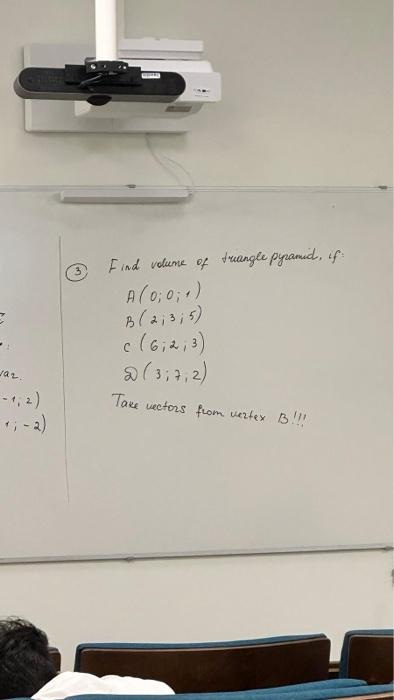 ③ Find volume of triangle pyramid, if:
A(0;0;1)
B(2;3;5)
C(6;2;3)
D(3;7;2)
Take vectors from vertex B!!!
-1;2)
1;-2)